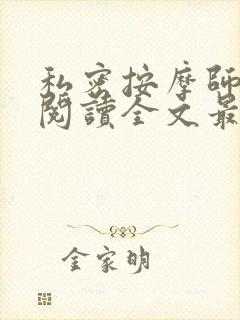 私密按摩師
閱讀全文最
金家明